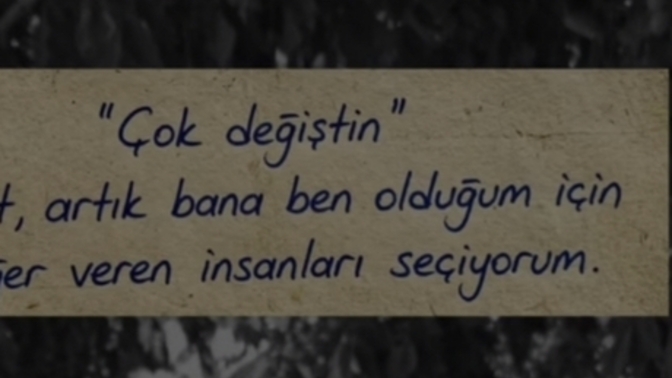 "Çok değiştin"
, artık bana ben olduğum için
veren insanları seçiyorum.